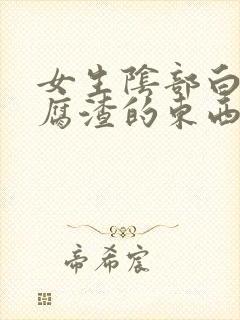 女生陰部白
腐渣的東西
帝希宸